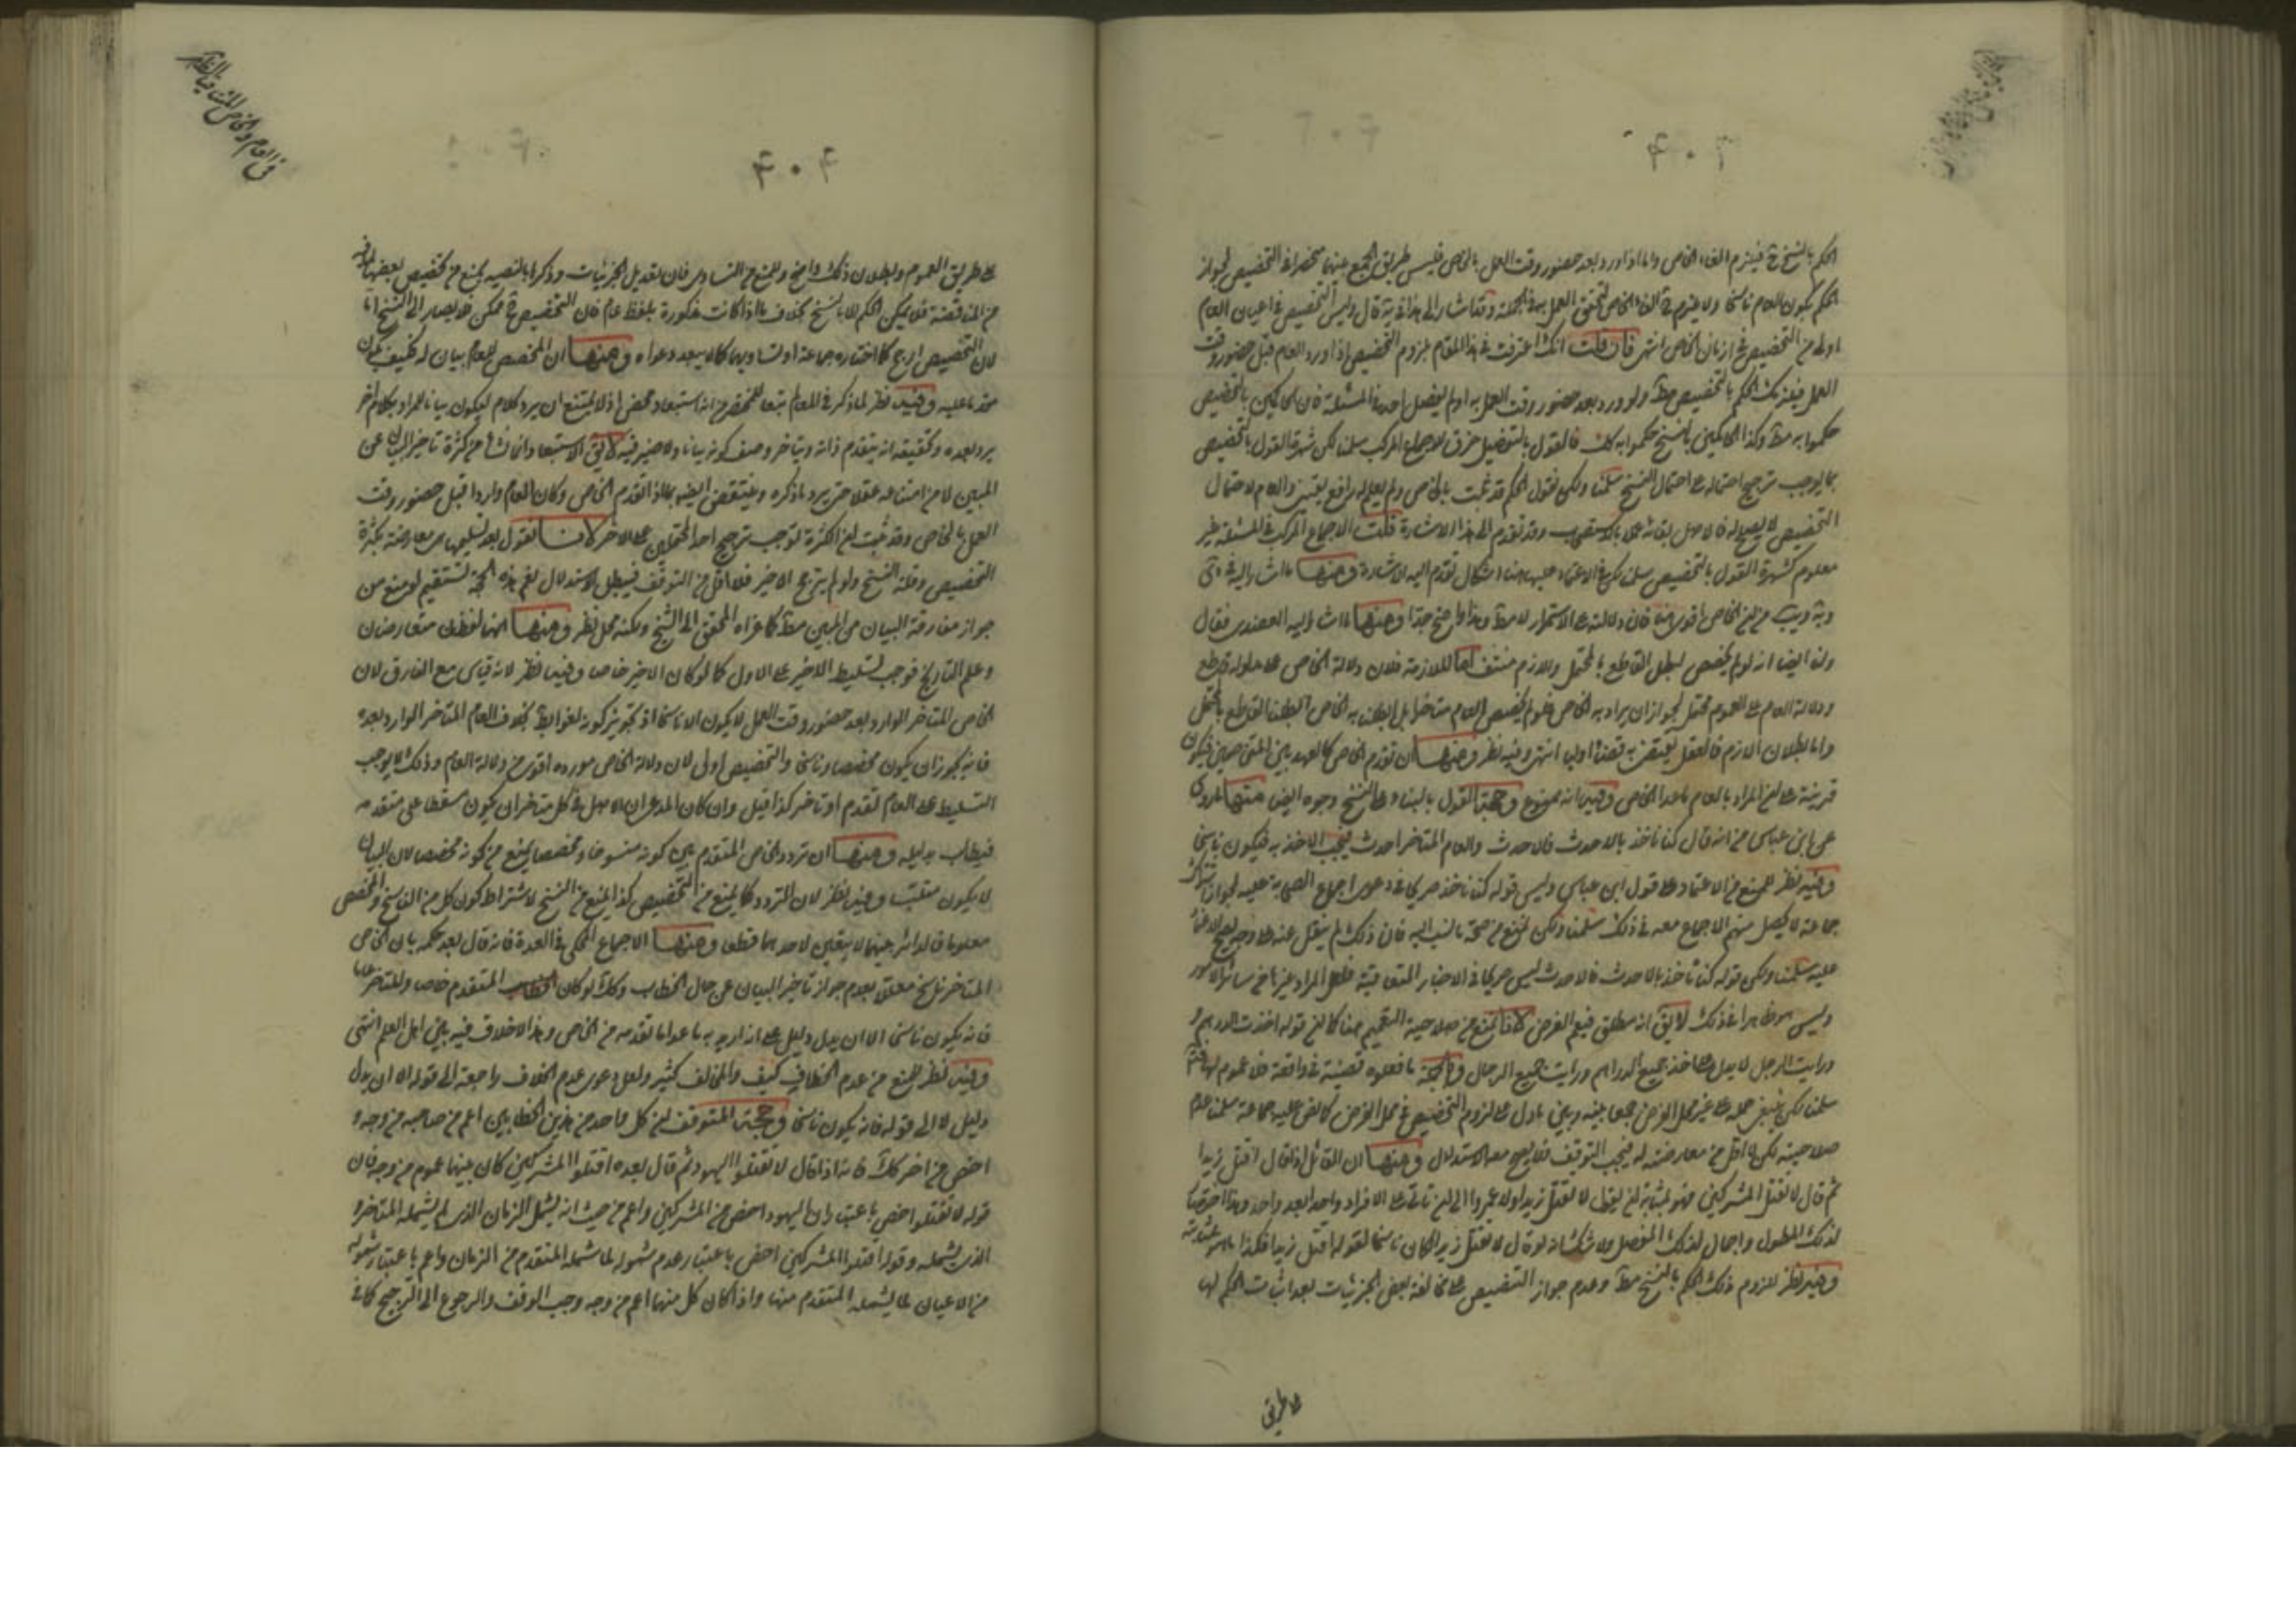 ٤٠٣
الحكم بالنسخ ح فيلزم الغاء الخاص واما اذا ورد بعد حضور وقت العمل بالخاص فليس طريق الجمع بينهما منحصرا في التخصيص لجواز
الحكم بكون العام ناسخا ولا يلزم ح الغاء الخاص لتحقق العمل به في الجملة وقد اشار الى هذا في ية قال وليس التخصيص في اعيان العام
اولى من التخصيص في ازمان الخاص انتهى فان قلت انك اعترفت في هذا المقام بلزوم التخصيص اذا ورد العام قبل حضور وقت
العمل فيلزمك الحكم بالتخصيص مط ولو ورد بعد حضور وقت العمل به اذ لم يفصل احد في المسئلة فان الحاكمين بالتخصيص
حكموا به مط وكذا الحاكمين بالنسخ حكموا به كك فالقول بالتفصيل خرق للاجماع المركب سلمنا لكن شهرة القول بالتخصيص
مما يوجب ترجيح احتماله على احتمال النسخ سلمنا ولكن نقول الحكم قد ثبت بالخاص ولم يعلم له رافع يقينى والعام لاحتمال
التخصيص لا يصلح له فالاصل بقائه عملا بالاستصحاب وقد تقدم الى هذا الاشارة قلت الاجماع المركب في المسئلة غير
معلوم كشهرة القول بالتخصيص سلمنا لكن في الاعتماد عليها هنا اشكال تقدم اليه الاشارة ومنها ما اشار اليه في
وية ويب من ان الخاص اقوى فان دلالته على الاستمرار لا مط وهذا واضح جدا ومنها ما اشار اليه العضدى فقال
ولنا ايضا انه لو لم يخصص لبطل القاطع بالمحتمل واللازم منتف اما الملازمة فلان دلالة الخاص على مدلوله قاطع
ودلالة العام على العموم محتمل لجواز ان يراد به الخاص فلو لم يخصص العام متاخرا بل ابطلنا به الخاص ابطلنا القاطع بالمحتمل
واما بطلان اللازم فالعقل يقتضى به قضاء اوليا انتهى وفيه نظر ومنها ان تقدم الخاص كالعهد بين المتخاصمين فيكون
قرينة على ان المراد بالعام ما عدا الخاص وفيه انه ممنوع وحجة القول بالبناء على النسخ وجوه ايض منها المروى
عن ابن عباس من انه قال كنا ناخذ بالاحدث فالاحدث والعام المتاخر احدث فيجب الاخذ به فيكون ناسخا
وفيه نظر للمنع من الاعتماد على قول ابن عباس وليس قوله كنا ناخذ صريحا في دعوى اجماع الصحابة عليه لجواز
جماعة لا يحصل منهم الاجماع معه في ذلك سلمنا ولكن نمنع من صحة ما نسب اليه فان ذلك لم ينقل عنه على وجه يصح الاعتماد
عليه سلمنا ولكن قوله كنا ناخذ بالاحدث فالاحدث ليس صريحا في الاخبار المتعاقبة فلعل المراد غيرها من سائر الامور
وليس هو ظاهرا في ذلك لا يق انه مطلق فيعم الفرض لانا نمنع من صلاحيته للتعميم هنا كما ان قوله اخذت الدرهم و
ورايت الرجل لا يدل على اخذ جميع الدراهم ورايت جميع الرجال وبالجملة ما فعلوه قضية في واقعة فلا عموم لها
سلمنا لكن ينبغى حمله على غير محل الفرض جمعا بينه وبين ما دل على لزوم التخصيص في محل الفرض كما نص عليه جماعة سلمنا عدم
صلاحيته لكن لا اقل من معارضته له فيجب التوقف فلا يصح معه الاستدلال ومنها ان القائل اذا قال اقتل زيدا
ثم قال لا تقتل المشركين فهو بمثابة ان يقول لا تقتل زيدا ولا عمروا الى ان ياتى على الافراد واحدا بعد واحد وهذا اختصار
لذلك المطول واجمال لذلك المفصل ولا شك انه لو قال لا تقتل زيدا لكان ناسخا لقوله اقتل زيدا فكذا ما هو بمثابته
وفيه نظر للزوم ذلك الحكم بالنسخ مط وعدم جواز التخصيص على مخالفة بعض الجزئيات بعد اثبات الحكم لها
على طريق
في العام والخاص المتنافيا الظاهر
٤٠٤
على طريق العموم وبطلان ذلك واضح وللمنع من التساوى فان تعديل الجزئيات وذكرها بالنصية يمنع من تخصيص بعضها لما فيه
من المناقضة فلا يمكن الحكم الا بالنسخ بخلاف ما اذا كانت مذكورة بلفظ عام فان التخصيص ح ممكن فلا يصار الى النسخ اما
لان التخصيص ارجح كما اختاره جماعة او لتساويهما كما لا يبعد دعواه ومنها ان المخصص للعام بيان له فكيف يكون
مقدما عليه وفيه نظر لما ذكر في المعالم تبعا للمختصر من انه استبعاد محض اذ لا يمتنع ان يرد كلام ليكون بيانا للمراد بكلام اخر
يرد بعده وتحقيقه انه يتقدم ذاته ويتاخر وصف كونه بيانا ولا ضير فيه لا يق الاستبعاد انما نشأ من كثرة تاخير البيان عن
المبين لا من امتناعه عقلا حتى يرد ما ذكره وينتقض ايضا بما اذا تقدم الخاص وكان العام واردا قبل حضور وقت
العمل بالخاص وقد ثبت ان الكثرة توجب ترجيح احد المحتملين على الاخر لانا نقول بعد تسليمها هى معارضة بكثرة
التخصيص وقلة النسخ ولو لم يترجح الاخير فلا اقل من التوقف فيبطل الاستدلال نعم هذه الحجة تستقيم لو منع من
جواز مفارقة البيان من المبين مط كما عزاه المحقق الى الشيخ ولكنه محل نظر ومنها انهما لفظان متعارضان
وعلم التاريخ فوجب تسليط الاخير على الاول كما لو كان الاخير خاصا وفيه نظر لانه قياس مع الفارق لان
الخاص المتاخر الوارد بعد حضور وقت العمل لا يكون الا ناسخا اذ تجويز كونه لغوا باطل بخلاف العام المتاخر الوارد بعده
فانه يجوز ان يكون مخصصا وناسخا والتخصيص اولى لان دلالة الخاص مورده اقوى من دلالة العام وذلك لا يوجب
التسليط على العام تقدم او تاخر كذا قيل وان كان المدعى ان الاصل في كل متاخر ان يكون مسلطا على متقدمه
فيطالب بدليله ومنها ان تردد الخاص المتقدم بين كونه منسوخا ومخصصا يمنع من كونه مخصصا لان البيان
لا يكون ملتبسا وفيه نظر لان التردد كما يمنع من التخصيص كذا يمنع من النسخ لاشتراط كون كل من الناسخ والمخصص
معلوما فالدائر بينهما لا يتعين لاحدهما قطعا ومنها الاجماع المحكى في العدة فانه قال بعد حكمه بان الخاص
المتاخر ناسخ معللا بعدم جواز تاخير البيان عن حال الخطاب وكك لو كان الخطاب المتقدم خاصا والمتاخر عاما
فانه يكون ناسخا الا ان يدل دليل على انه اريد به ما عدا ما تقدمه من الخاص وهذا لا خلاف فيه بين اهل العلم انتهى
وفيه نظر للمنع من عدم الخلاف كيف والمخالف كثير ولعل دعوى عدم الخلاف راجعة الى قوله الا ان يدل
دليل لا الى قوله فانه يكون ناسخا وحجة المتوقف ان كل واحد من هذين الخطابين اعم من صاحبه من وجه و
اخص من اخر كك فانه اذا قال لا تقتلوا اليهود ثم قال بعده اقتلوا المشركين كان بينهما عموم من وجه فان
قوله لا تقتلوا اخص باعتبار ان اليهود اخص من المشركين واعم من حيث انه يشمل الزمان الذى لم يشمله المتاخر و
الذى يشمله وقوله اقتلوا المشركين اخص باعتبار عدم شموله لما شمله المتقدم من الزمان واعم باعتبار شموله
من الاعيان لما يشمله المتقدم منها واذا كان كل منهما اعم من وجه وجب الوقف والرجوع الى الترجيح كما في